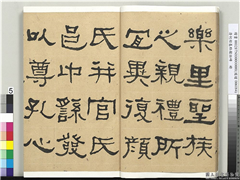 樂里聖族
之親禮所
宜異復顏
氏并官氏
邑中繇發
以尊孔心
5